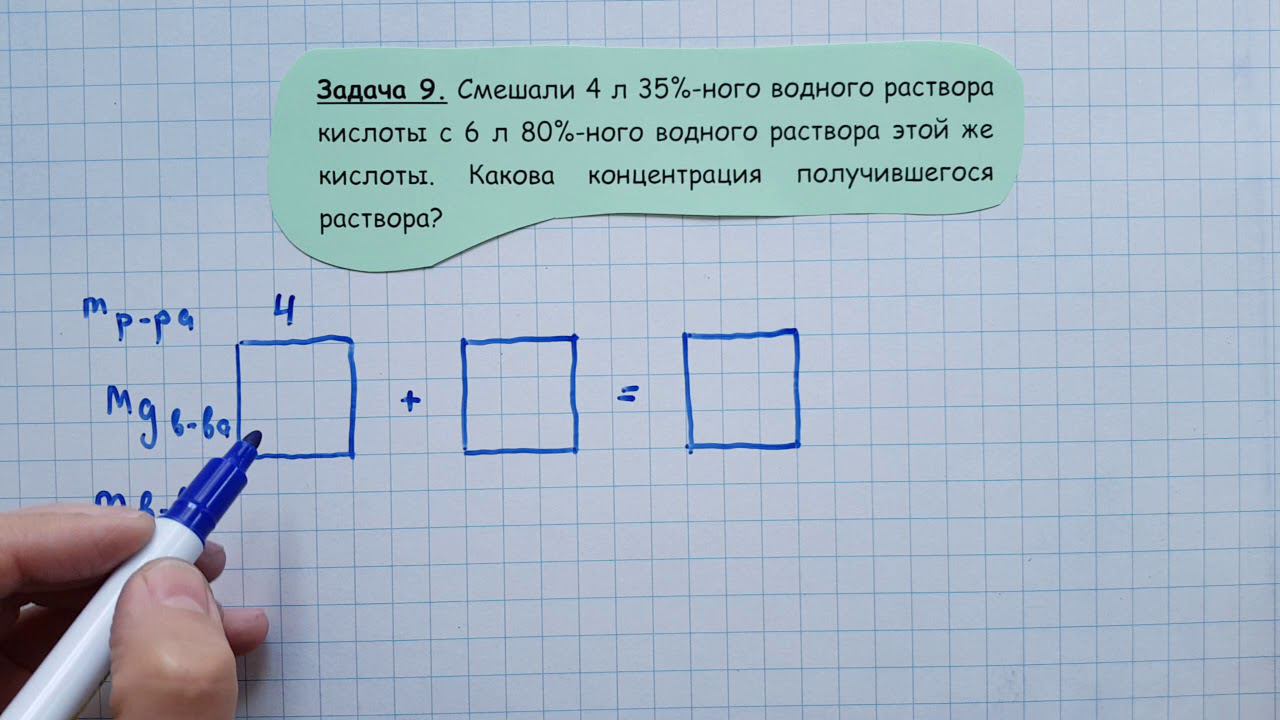 Задача 9. Смешали 4 л 35%-ного водного раствора
кислоты с 6 л 80%-ного водного раствора этой же
кислоты. Какова концентрация получившегося
раствора?
m р-ра 4
Mg в-ва
+ =
m в-